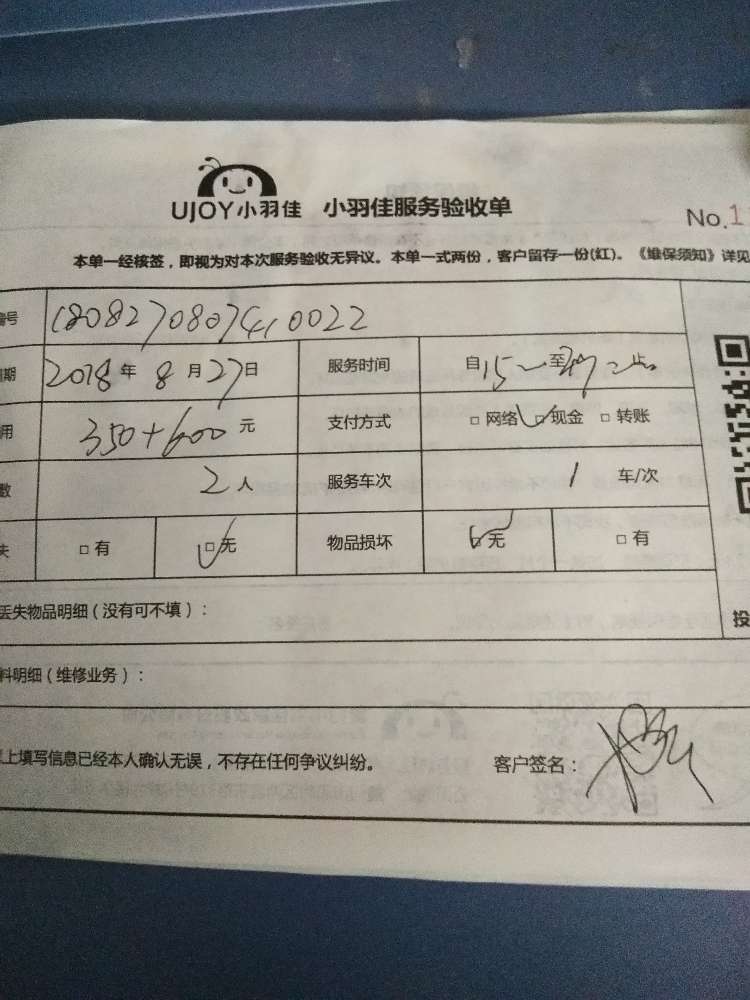 UJOY小羽佳 小羽佳服务验收单
No.1
本单一经核签，即视为对本次服务验收无异议。本单一式两份，客户留存一份(红)。《维保须知》详见
编号 1808270807410022
期 2018年8月27日 服务时间 自15 至 止
用 350+600元 支付方式 □网络 □现金 □转账
数 2人 服务车次 1车/次
失 □有 □无 物品损坏 □无 □有
丢失物品明细（没有可不填）：
投
料明细（维修业务）：
上填写信息已经本人确认无误，不存在任何争议纠纷。 客户签名：